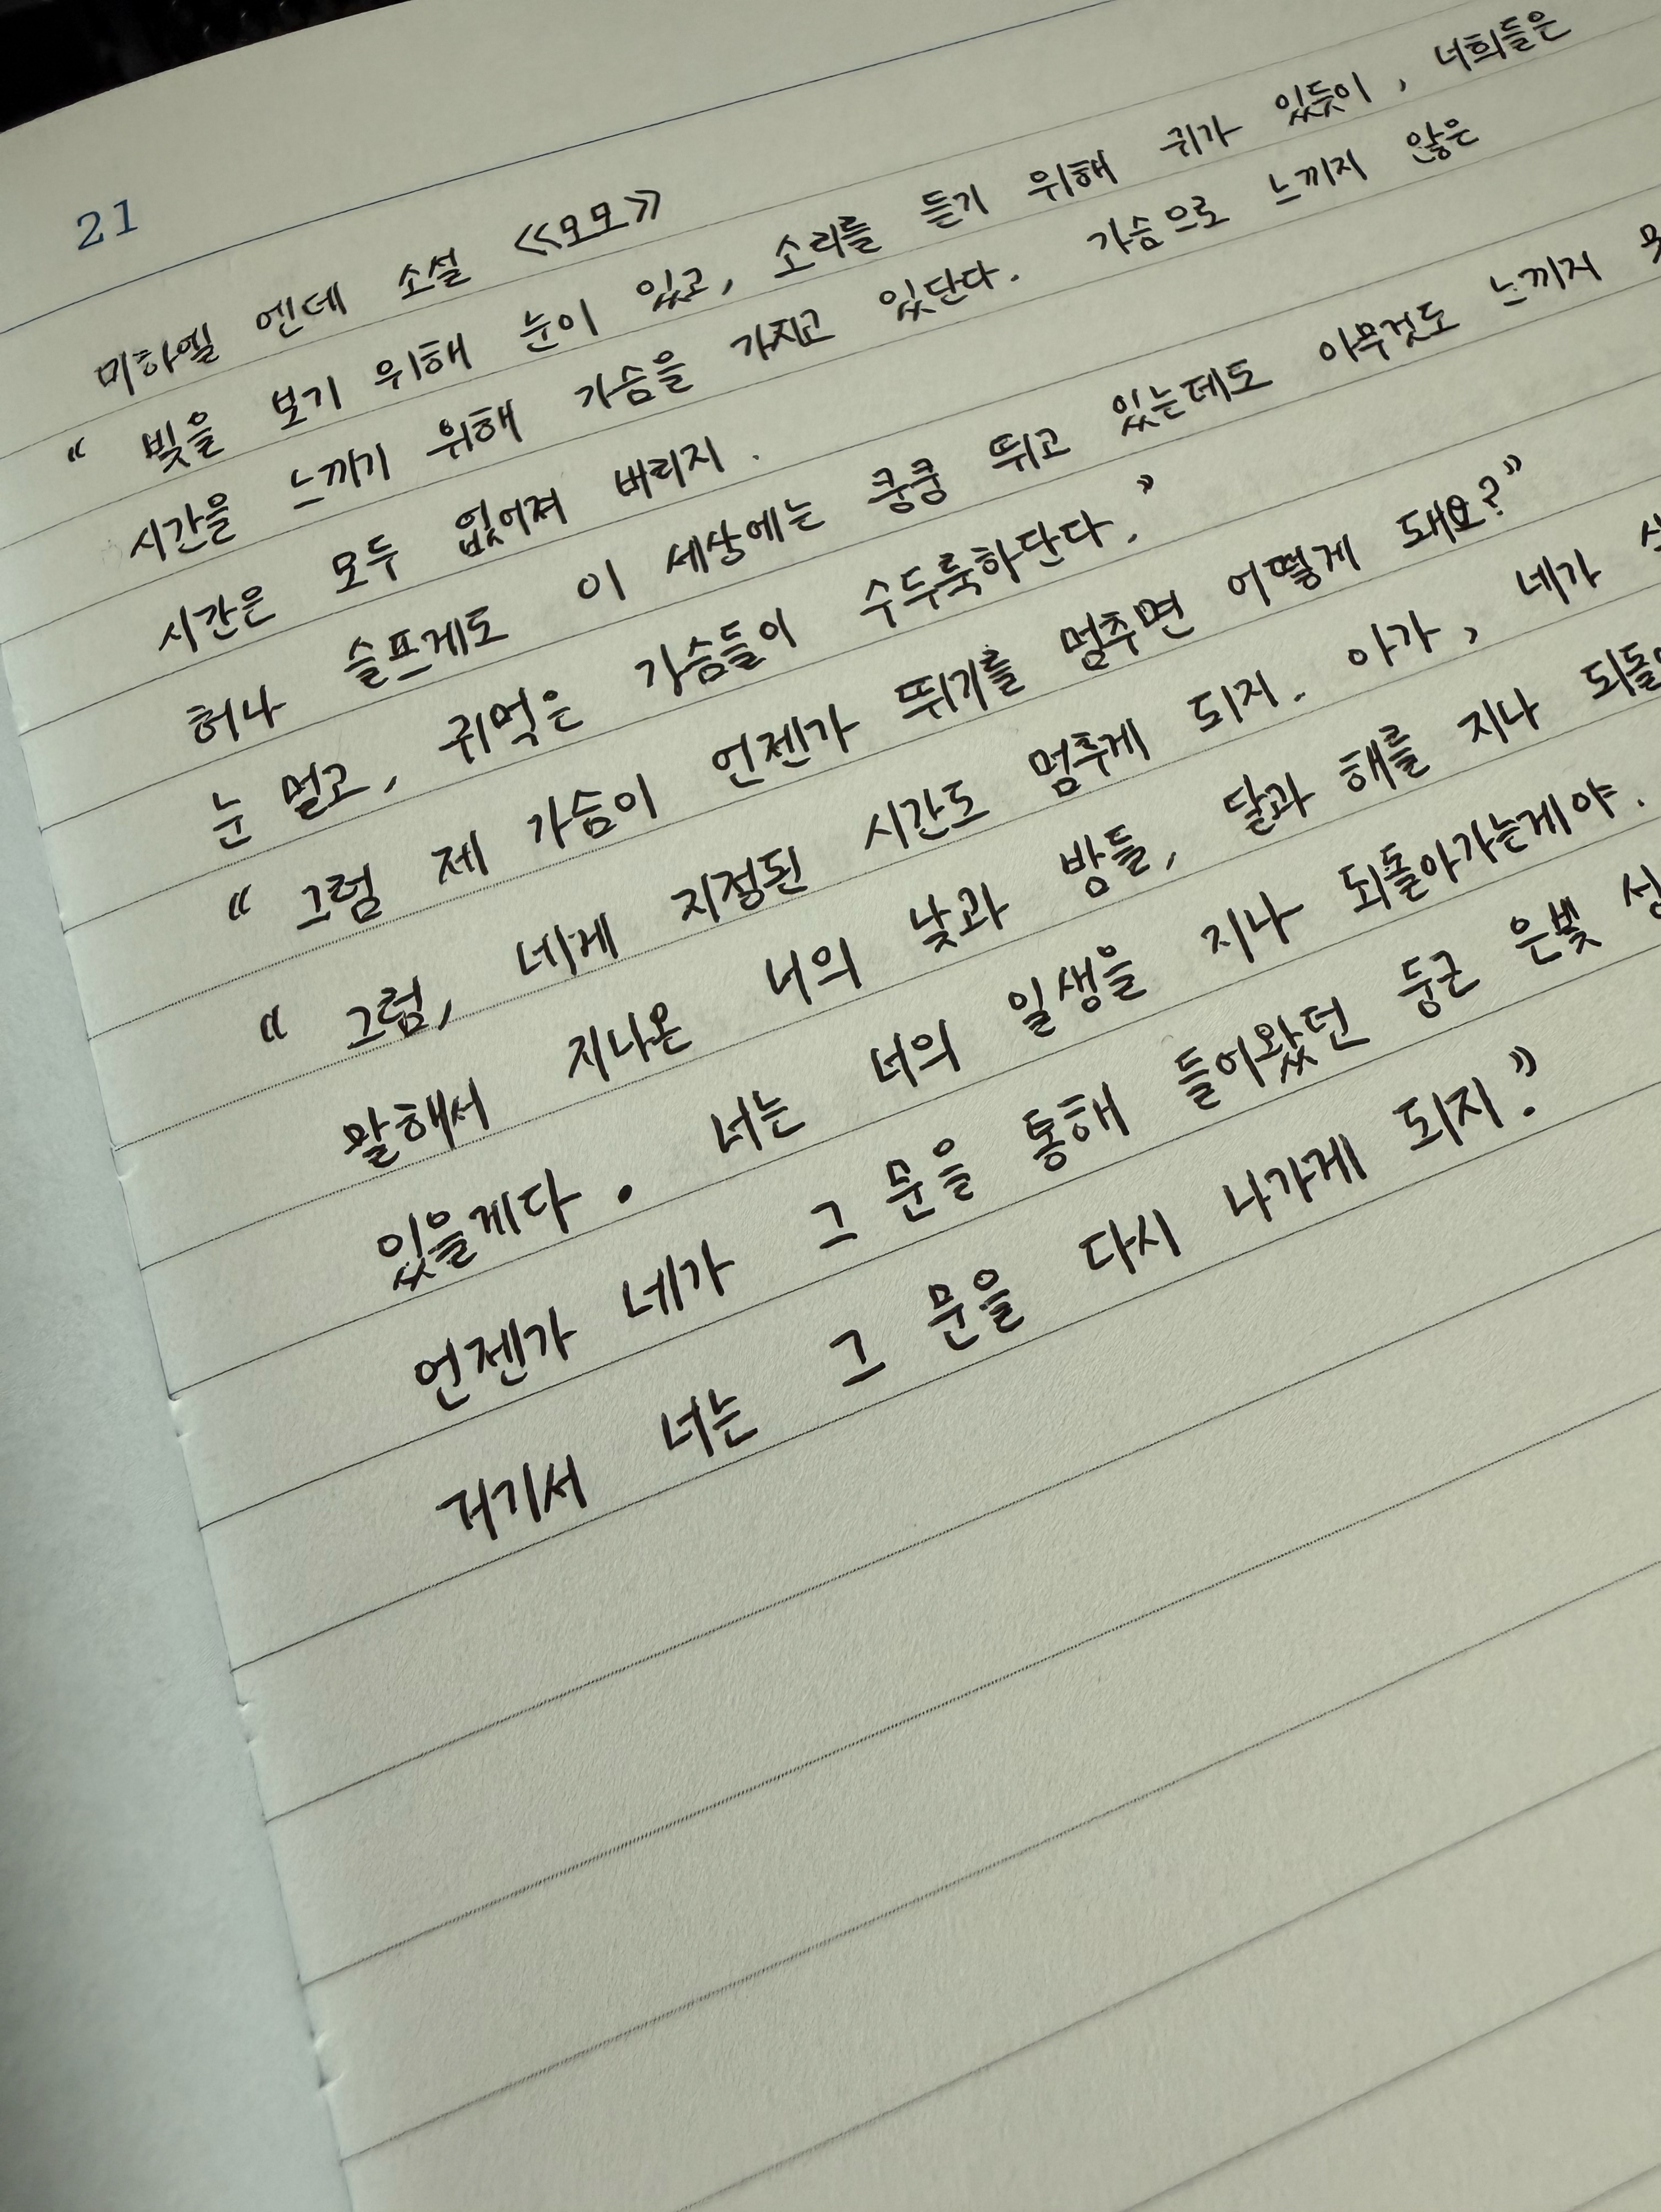 21
미하엘 엔데 소설 《모모》
" 빛을 보기 위해 눈이 있고, 소리를 듣기 위해 귀가 있듯이, 너희들은
시간을 느끼기 위해 가슴을 가지고 있단다. 가슴으로 느끼지 않은
시간은 모두 없어져 버리지.
허나 슬프게도 이 세상에는 쿵쿵 뛰고 있는데도 아무것도 느끼지
눈 멀고, 귀먹은 가슴들이 수두룩하단다."
" 그럼 제 가슴이 언젠가 뛰기를 멈추면 어떻게 돼요?"
" 그럼, 네게 지정된 시간도 멈추게 되지. 아가, 네가
말해서 지나온 너의 낮과 밤들, 달과 해를 지나
있을게다. 너는 너의 일생을 지나 되돌아가는게야.
언젠가 네가 그 문을 통해 들어왔던 둥근 은빛
거기서 너는 그 문을 다시 나가게 되지."